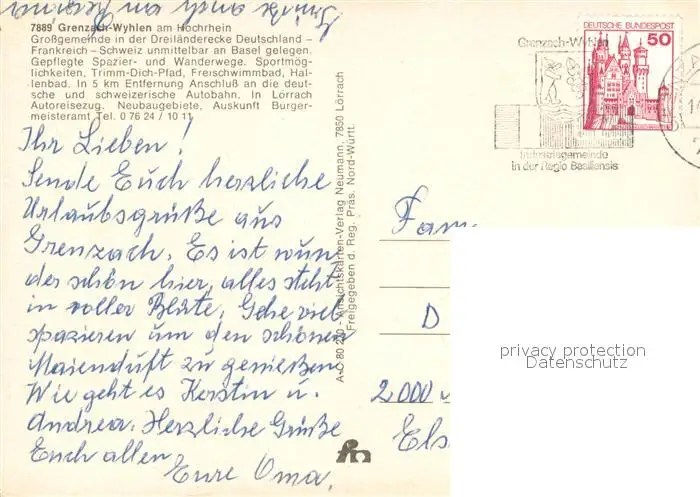 7889 Grenzach-Wyhlen am Hochrhein
Großgemeinde in der Dreiländerecke Deutschland –
Frankreich – Schweiz unmittelbar an Basel gelegen.
Gepflegte Spazier- und Wanderwege. Sportmög-
lichkeiten, Trimm-Dich-Pfad, Freischwimmbad, Hal-
lenbad. In 5 km Entfernung Anschluß an die deut-
sche und schweizerische Autobahn. In Lörrach
Autoreisezug. Neubaugebiete, Auskunft Burger-
meisteramt Tel. 0 76 24 / 10 11
Ihr Lieben!
Sende Euch herzliche
Urlaubsgrüße aus
Grenzach. Es ist wun
der schön hier, alles steht
in voller Blüte. Gehe viel
spazieren um den schönen
Maienduft zu genießen.
Wie geht es Kerstin u.
Andrea. Herzliche Grüße
Euch allen
Eure Oma.
Ansichtskarten-Verlag Neumann, 7850 Lörrach
Freigegeben d. Reg. Präs. Nord-Württ.
DEUTSCHE BUNDESPOST
50
Grenzach-Wyhlen
Industriegemeinde
in der Regio Basiliensis
Fam
D
2000
Els
privacy protection
Datenschutz